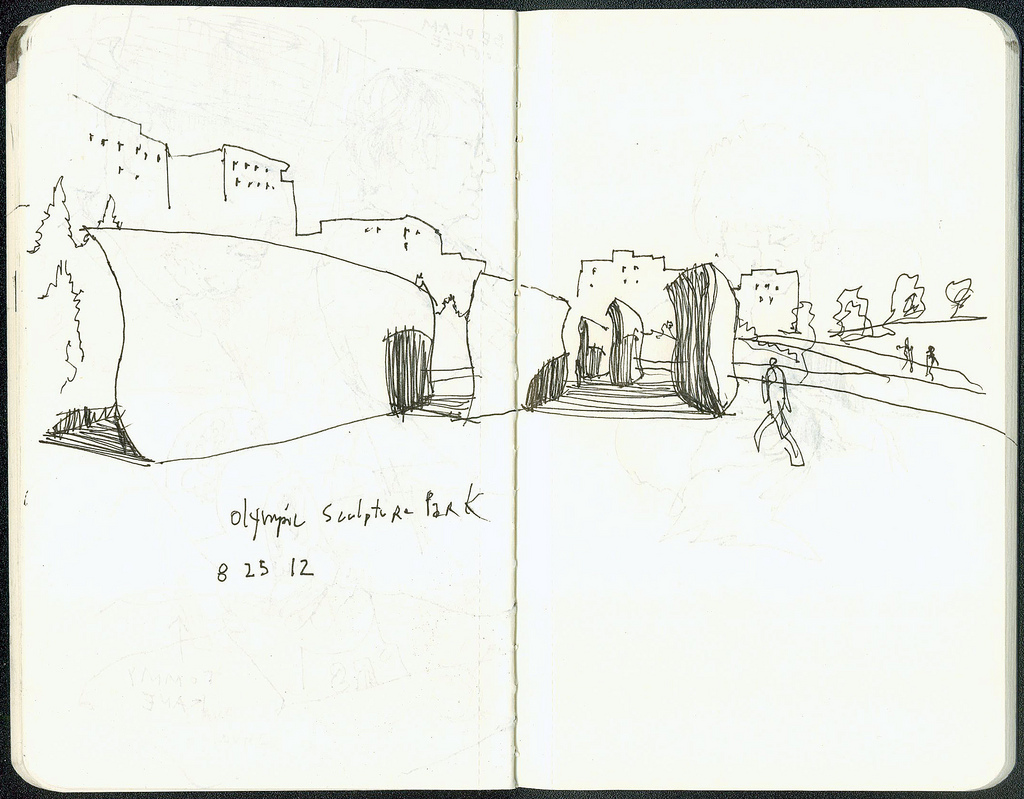 Olympic Sculpture Park
8 25 12